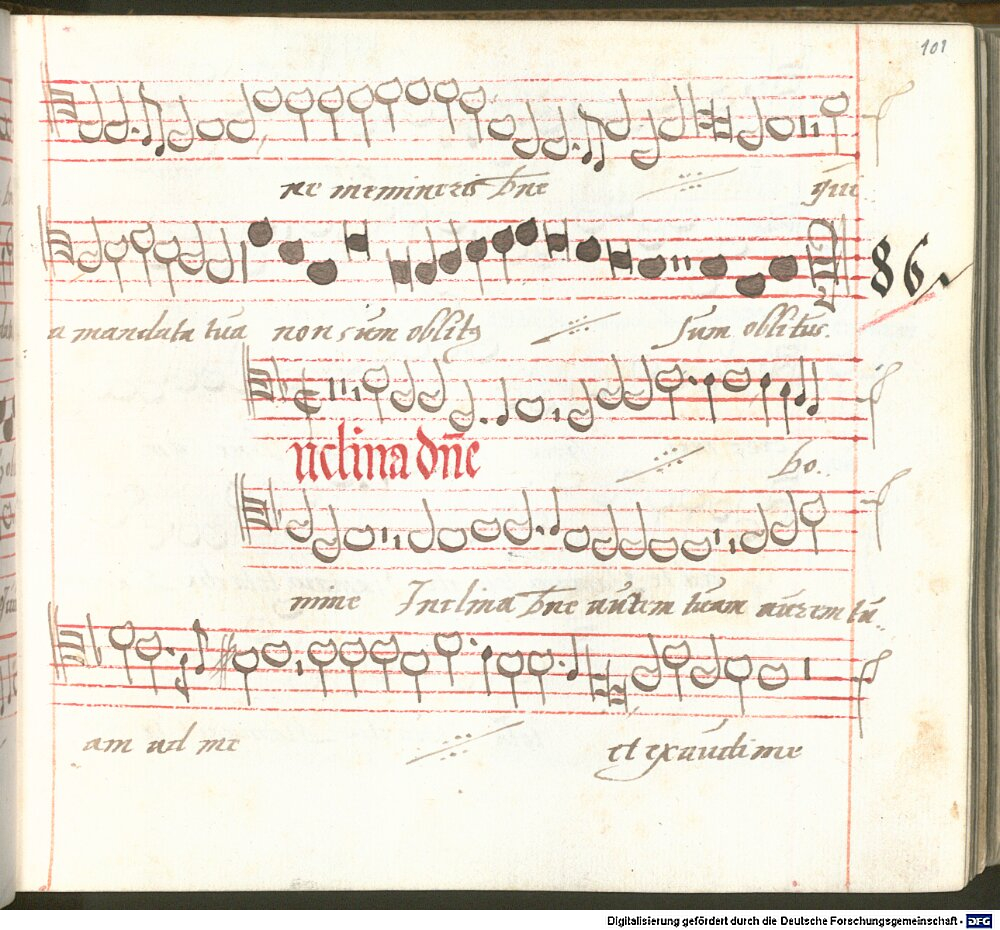 101
ne memineris dne qui
a mandata tua non sum oblitus sum oblitus.
86
nclina dñe Do..
mine Inclina dne autem tuam aurem tu..
am ad me et exaudi me
Digitalisierung gefördert durch die Deutsche Forschungsgemeinschaft - DFG